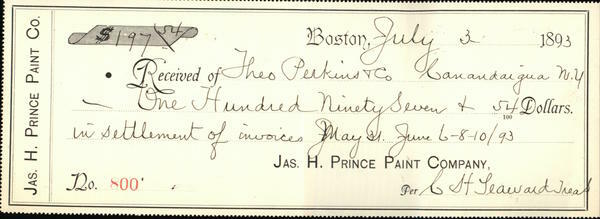 JAS. H. PRINCE PAINT CO.
$197 54
Boston, July 3 1893
Received of Theo Perkins & Co Canandaigua N.Y
One Hundred Ninety Seven & 54/100 Dollars.
in settlement of invoices May 21. June 6-8-10/93
JAS. H. PRINCE PAINT COMPANY,
No. 800
Per C H Seaward Treas